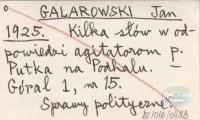 GALAROWSKI Jan
1925. Kilka słów w od-
powiedzi agitatorom p.
Putka na Podhalu.
Góral 1, nr 15.
Sprawy polityczne.